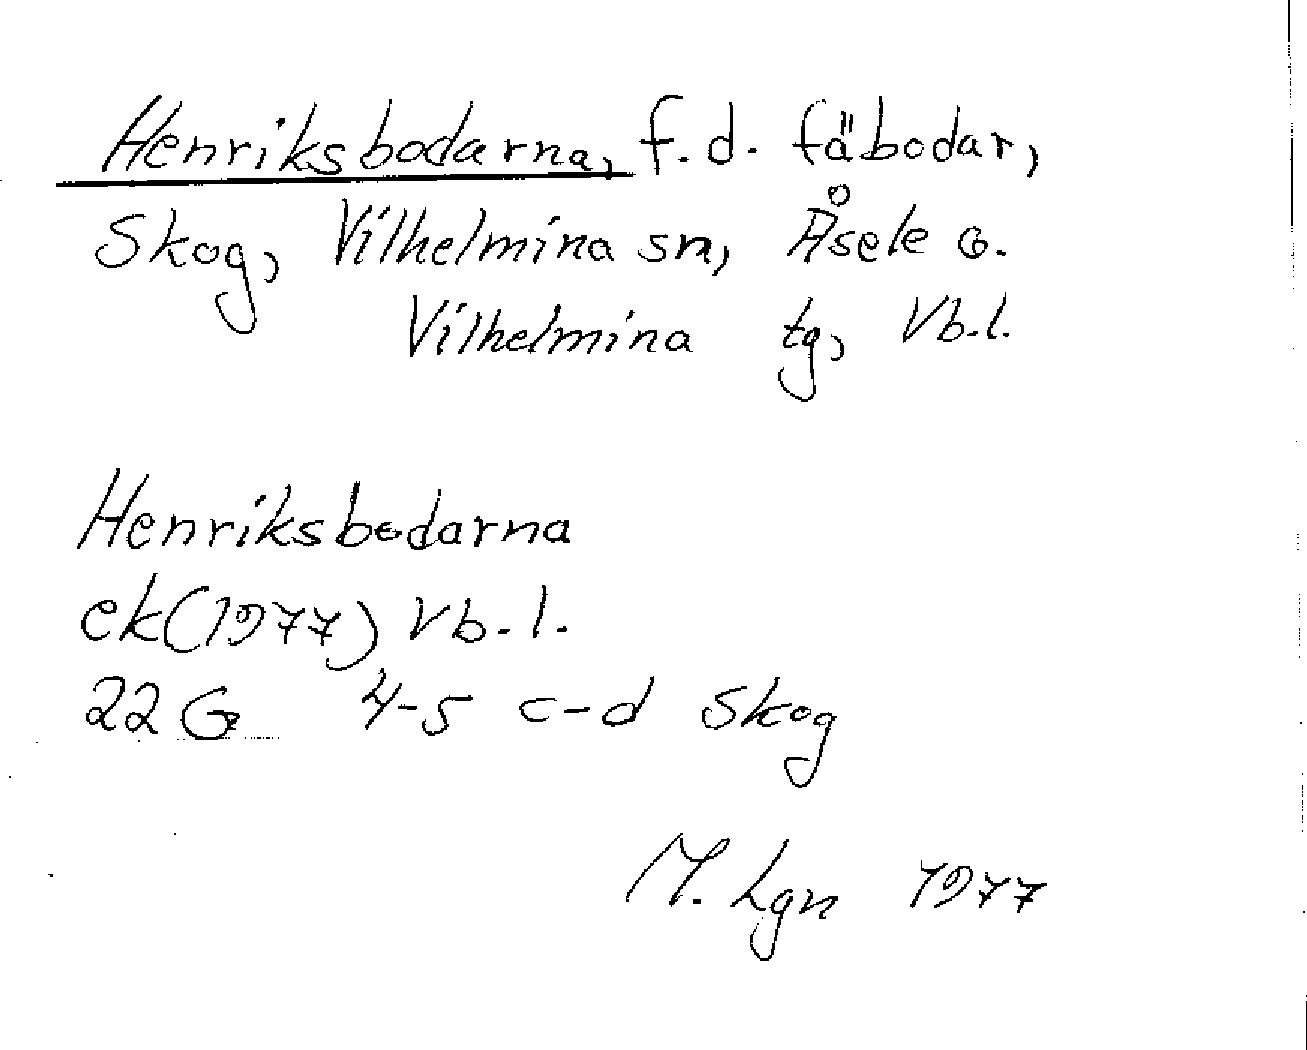 Henriksbodarna, f.d. fäbodar,
Skog, Vilhelmina sn, Åsele o.
Vilhelmina tg, Vb.l.
Henriksbodarna
ek(1977) Vb.l.
22G 4-5 c-d Skog
M. Lgn 1977